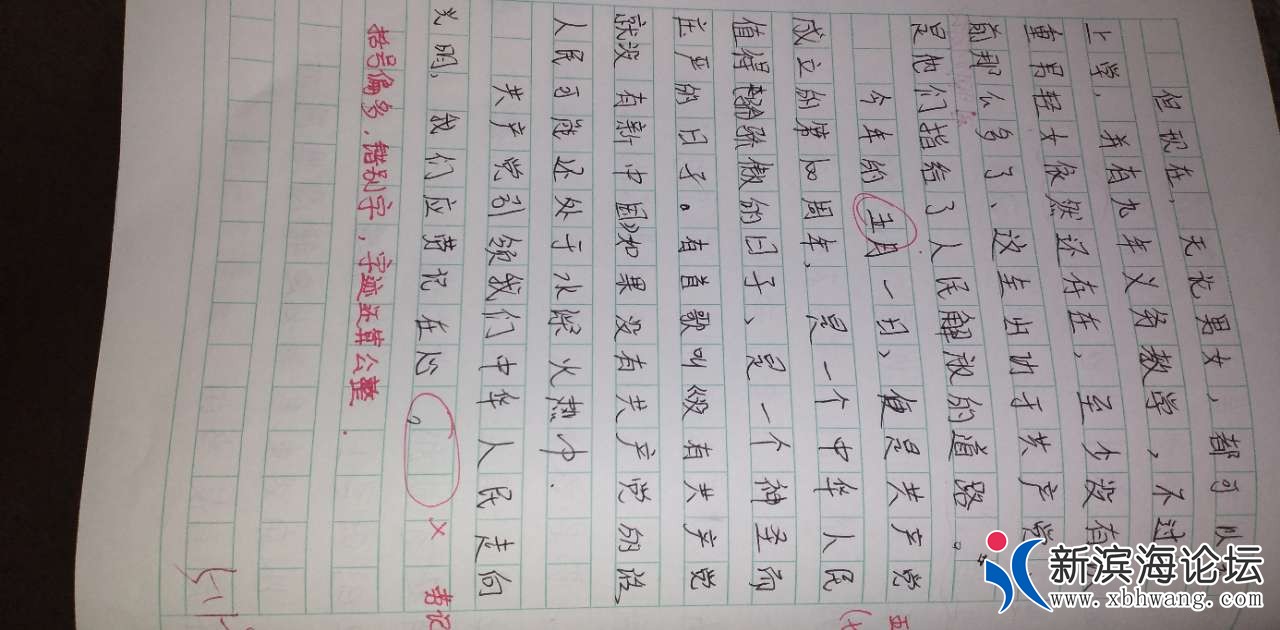 但现在，无论男女，都可以
上学，并有九年义务教学，不过
重男轻女依然还存在，至少没有
前那么多了、这主由功于共产党
是他们指给了人民解放的道路。"
今年的五月一日、便是共产党
成立的第100周年，是一个中华人民
值得骄傲的日子、是一个神圣而
庄严的日子。有首歌叫《没有共产党
就没有新中国》如果没有共产党的话
人民可能还处于水深火热中.
共产党引领我们中华人民走向
光明，我们应劳记在心。
× 劳记
五
(七
括号偏多，错别字，字迹还算公整.
新滨海论坛
www.xbhwang.com